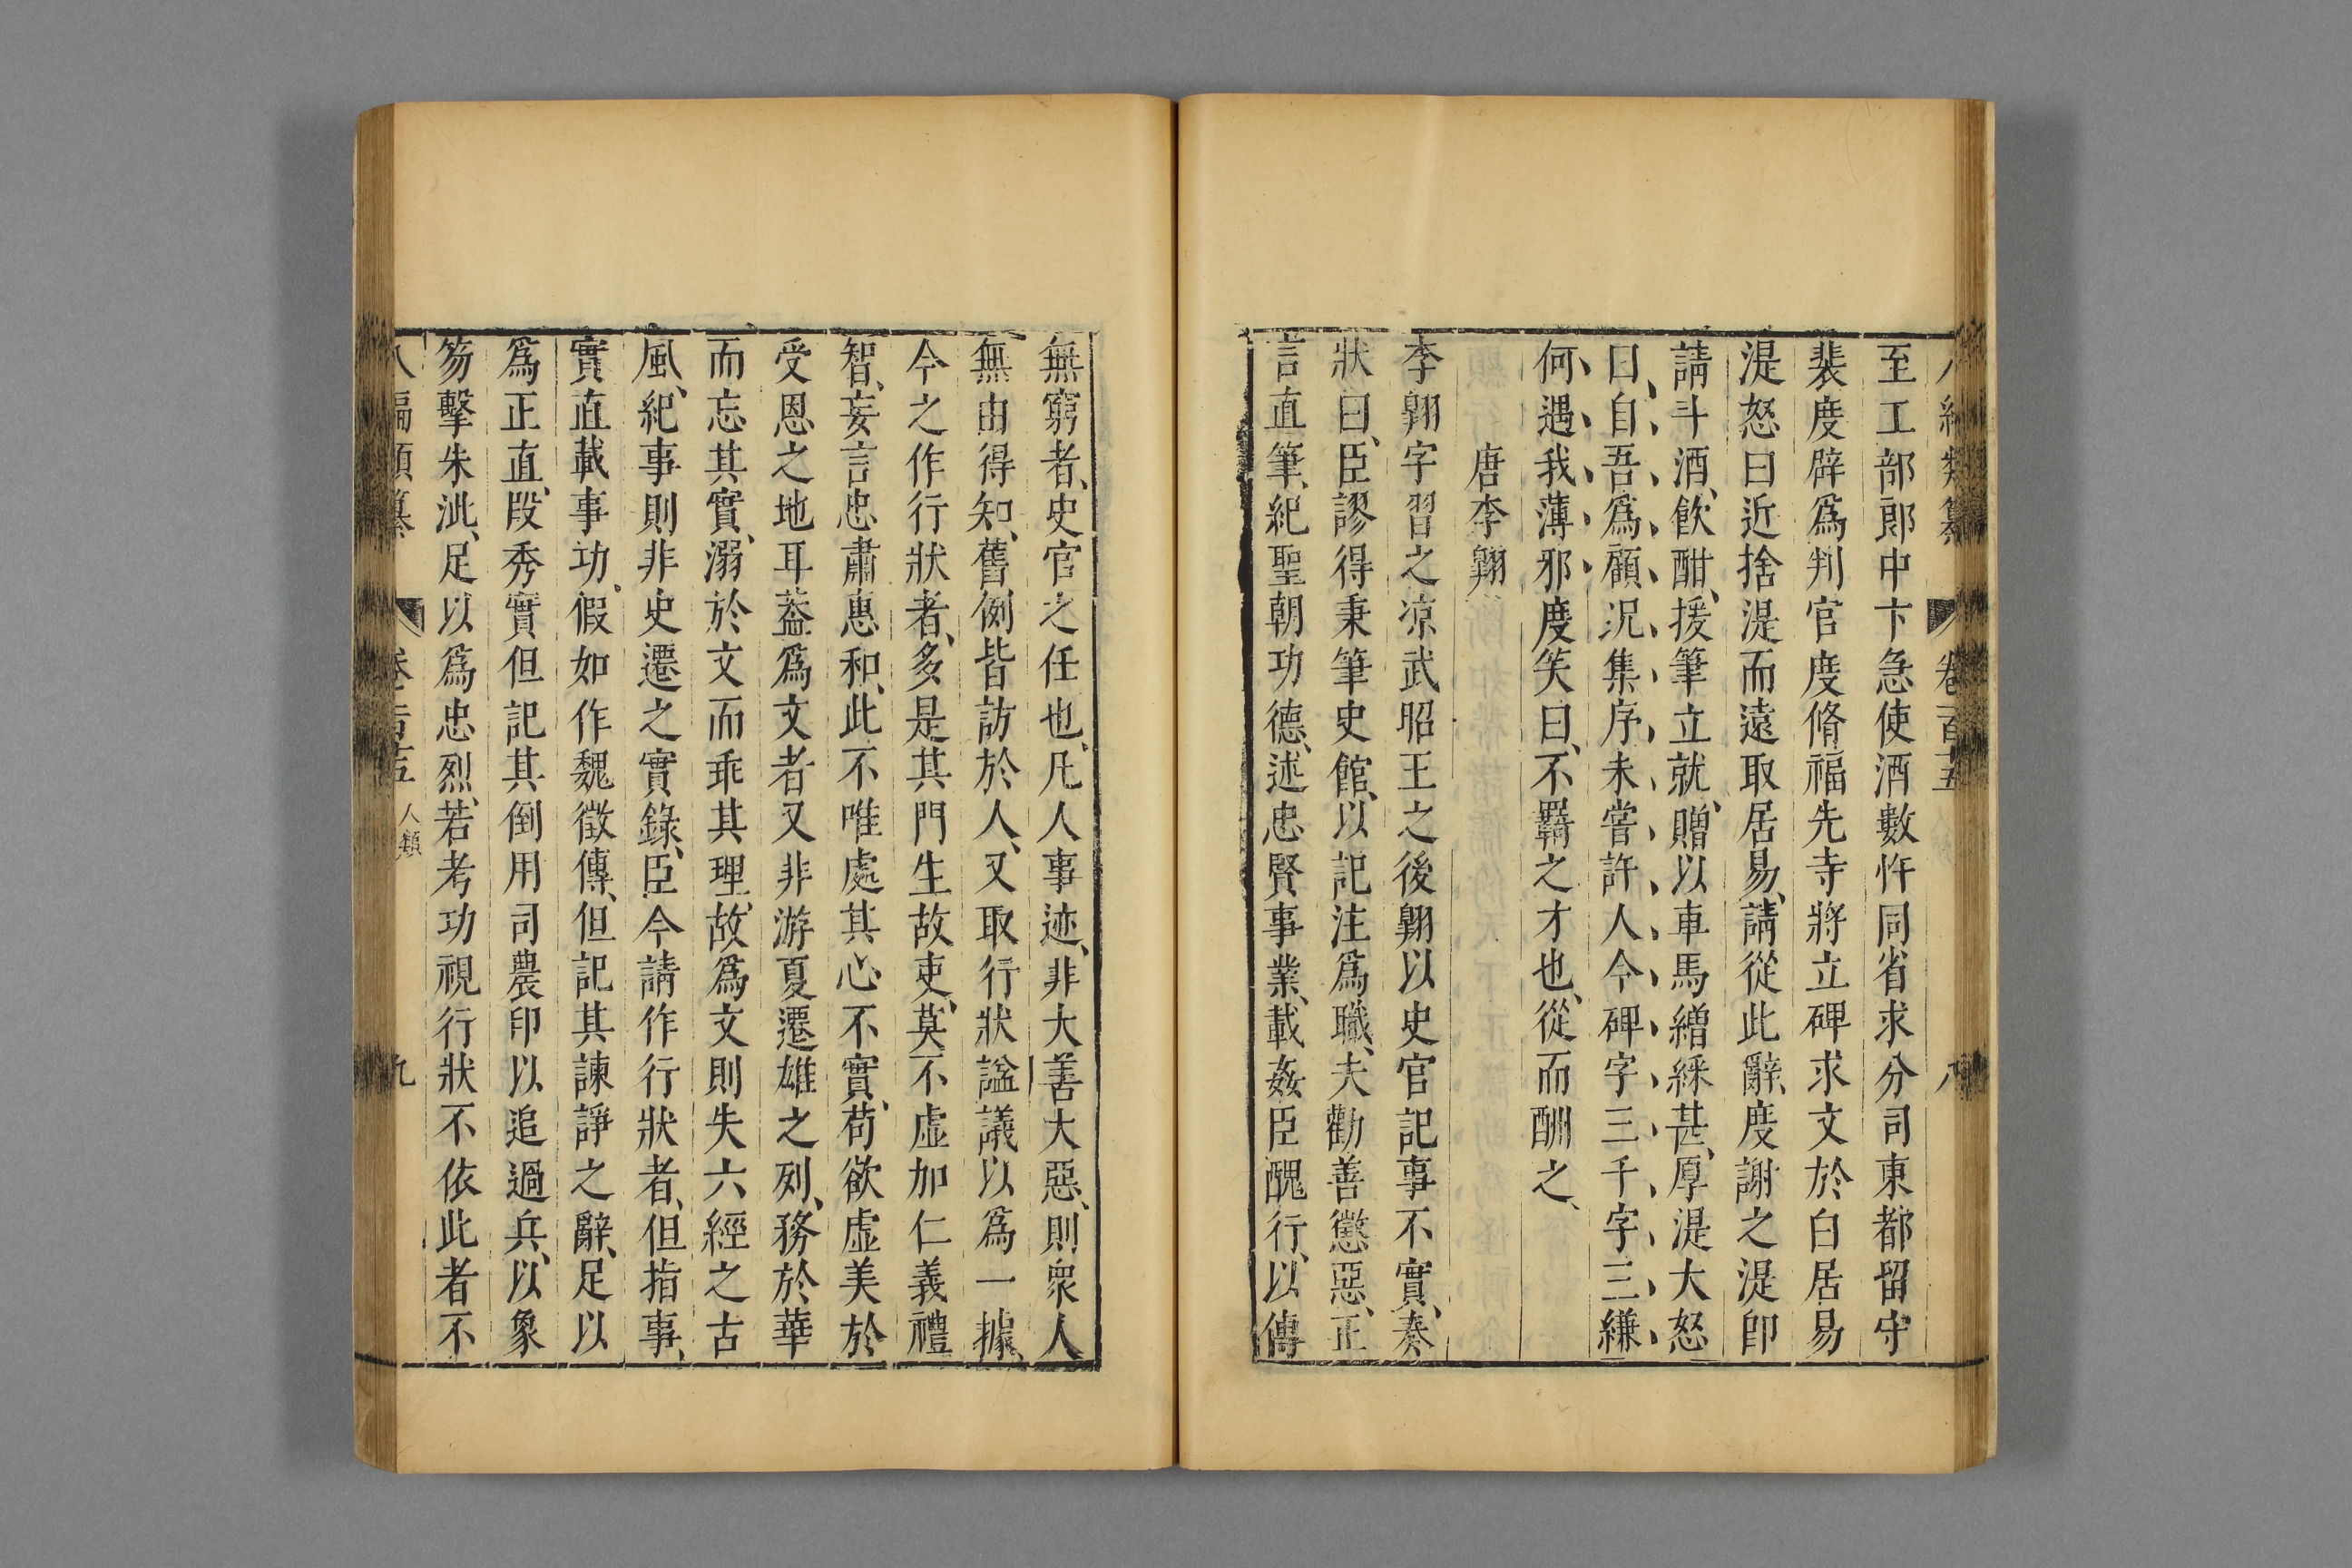 至工部郎中卞急使酒數忤同省求分司東都留守
裴度辟爲判官度脩福先寺將立碑求文於白居易
湜怒曰近捨湜而遠取居易、請從此辭、度謝之湜卽
請斗酒、飲酣、援筆立就、贈以車馬繒綵甚、厚湜大怒
曰、自吾爲顧况集序未嘗許人今碑字三千字三縑
何遇我薄邪度笑曰、不羈之才也、從而酬之、
唐李翺
李翺字習之凉武昭王之後翺以史官記事不實、奏
狀曰、臣謬得秉筆史館、以記注爲職、夫勸善懲惡、正
言直筆、紀聖朝功德、述忠賢事業、載姦臣醜行、以傳
無窮者、史官之任也、凡人事迹、非大善大惡、則衆人
無由得知、舊例皆訪於人、又取行狀謚議以爲一據、
今之作行狀者、多是其門生故吏、莫不虛加仁義禮
智、妄言忠肅惠和、此不唯處其心不實、苟欲虛美於
受恩之地耳葢爲文者又非游夏遷雄之列、務於華
而忘其實、溺於文而乖其理、故爲文則失六經之古
風、紀事則非史遷之實錄、臣今請作行狀者、但指事、
實直載事功、假如作魏徵傳、但記其諫諍之辭、足以
爲正直、段秀實但記其倒用司農印以追逆兵、以象
笏擊朱泚、足以爲忠烈、若考功視行狀不依此者不
卷一百十五 人類 九